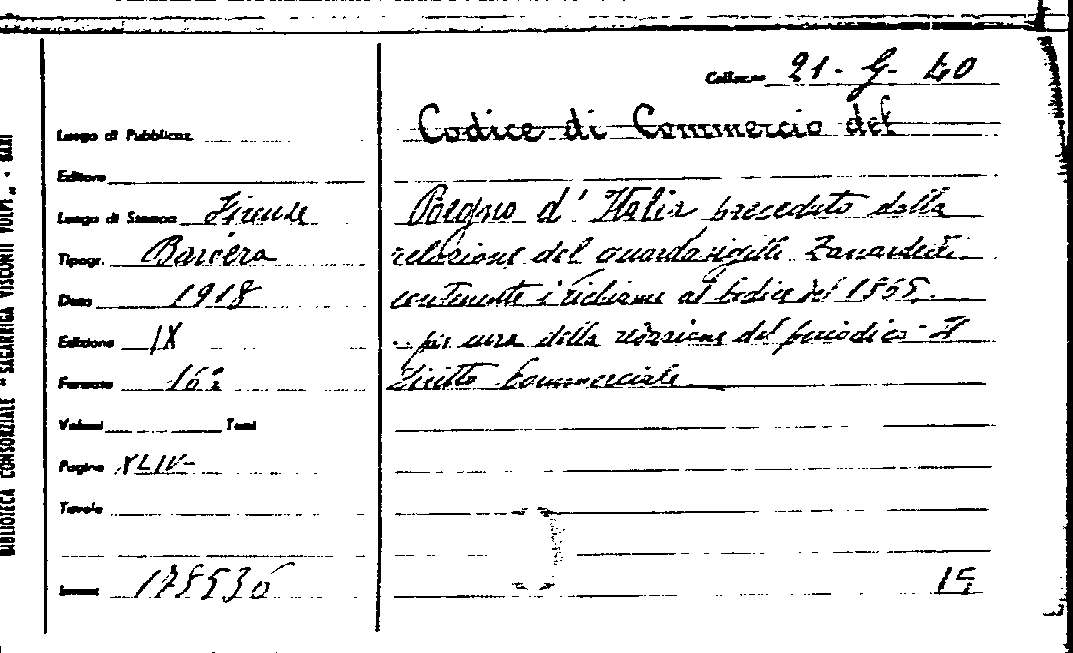 BIBLIOTECA CONSORZIALE "SAGARRIGA VISCONTI VOLPI" - BARI
Collocaz. 21 - G - 40
Codice di Commercio del
Regno d'Italia preceduto dalla
relazione del guardasigilli Zanardelli
contenente i richiami al Codice del 1865.
per cura della redazione del periodico Il
Diritto Commerciale
15
Luogo di Pubblicaz.
Editore
Luogo di Stampa Firenze
Tipogr. Barbèra
Data 1918
Edizione IX
Formato 16º
Volumi Tomi
Pagine XLIV-
Tavole
178536